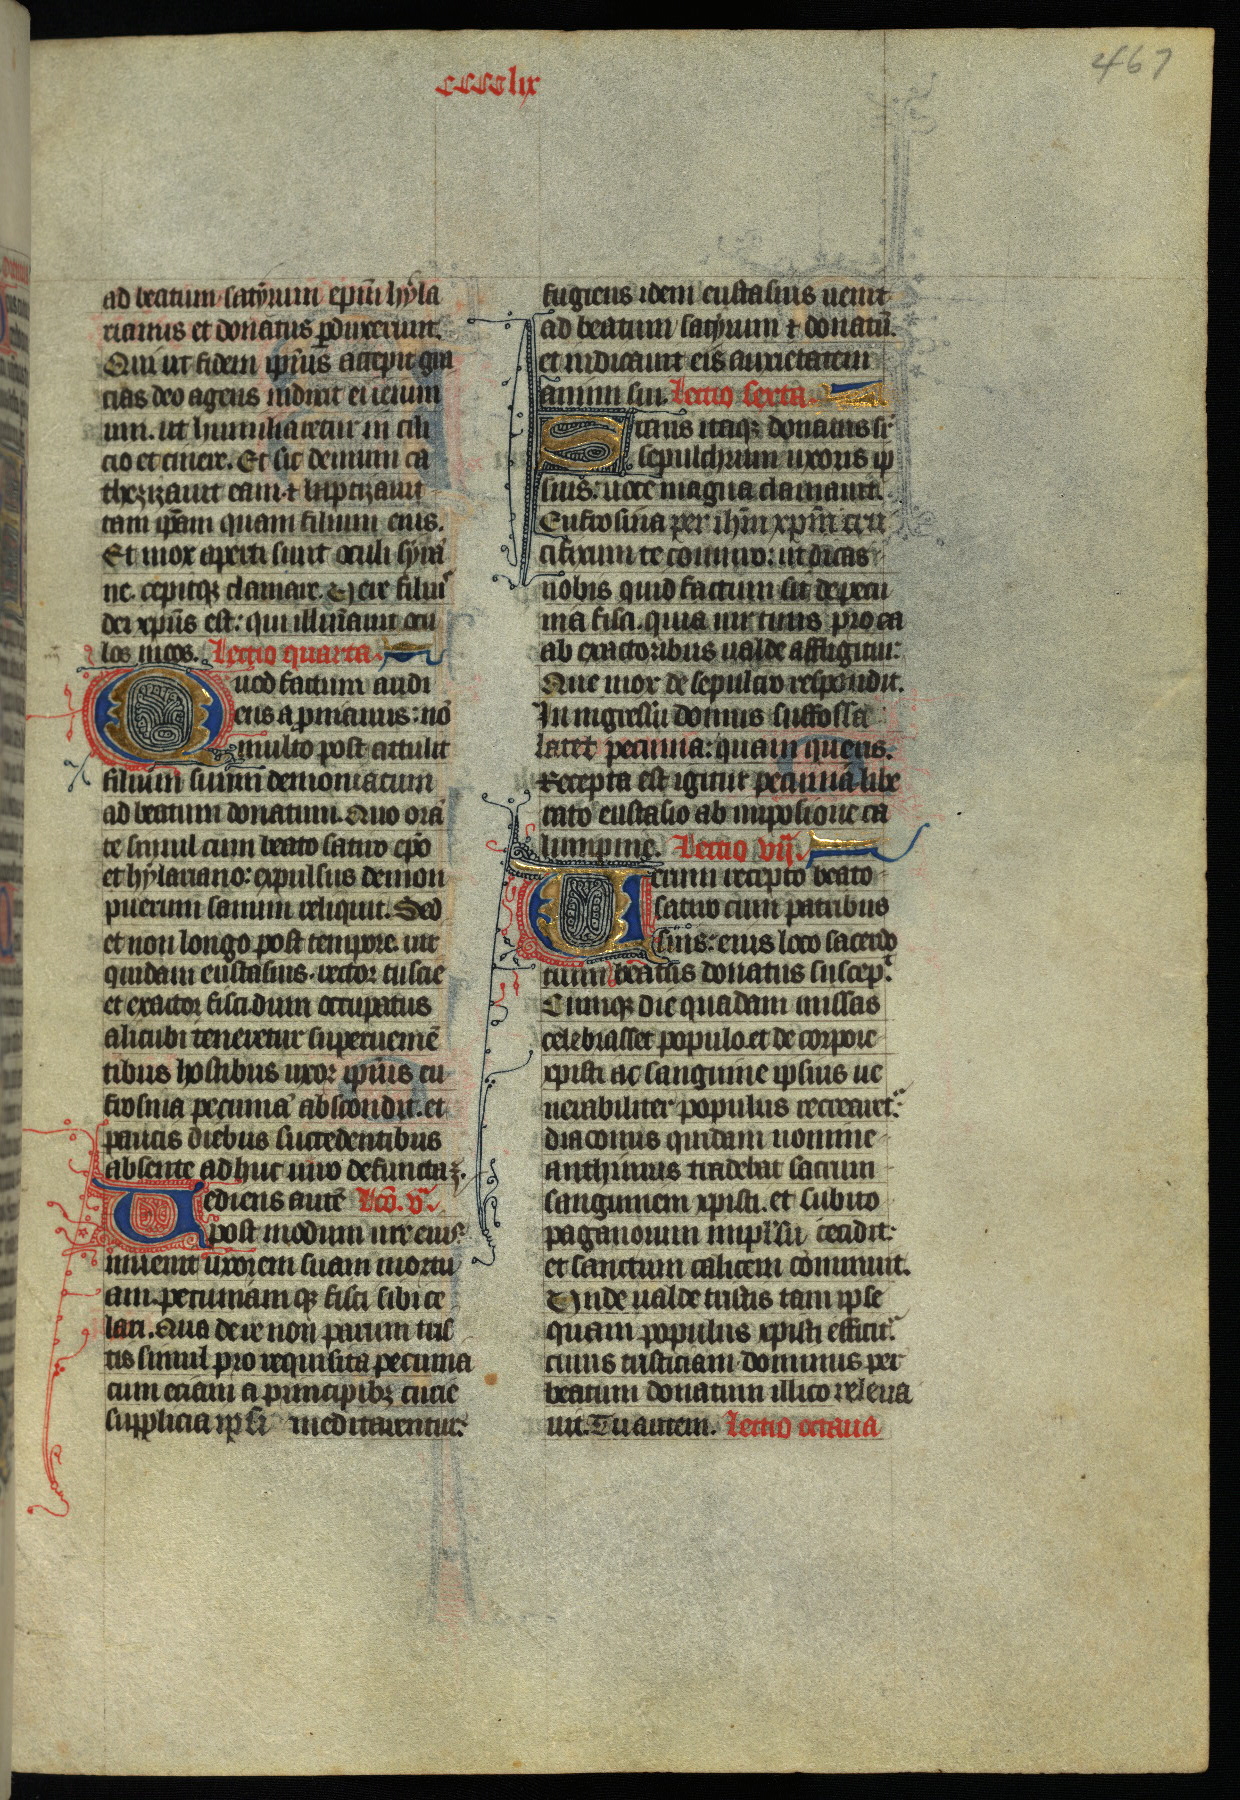 467
cccclix
ad beatum satyrum epm̄ hyla
rianus et donatus ꝑduxerunt.
Qui ut fidem ipīus accepit gra
cias deo agens indixit ei ieiuni
um. ut humiliaretur in cili
cio et cinere. Et sic demum ca
thezizauit eam ⁊ baptizauit
tam ip̄am quam filium eius.
Et mox aperti sunt oculi syra
ne. cepitqꝫ clamare. Uere filiꝰ
dei xp̄us est: qui illuīauit ocu
los meos. Lectio quarta.
Quod factum audi
ens apronianus: nō
multo post attulit
filium suum demoniacum
ad beatum donatum. Quo orā
te simul cum beato satiro ep̄o
et hylariano: expulsus demon
puerum sanum reliquit. Sed
et non longo post tempore. uir
quidam eustasius. rector tuscie
et exactor fisci. dum occupatus
alicubi teneretur superuenıē
tibus hostibus uxor ipīus eu
frosina pecuniā abscondit. et
paucis diebus succedentibus
absente adhuc uiro defuncta ē.
Rediens autē Lcō. vᵃ.
post modum uir eius
inuenit uxorem suam mortu
am. pecuniam qꝫ fisci sibi ce
lari. Qua de re non parum tris
tis simul pro requisita pecunia
cum eciam a principibꝫ curie
supplicia ipsi meditarentur:
fugiens idem eustasius uenit
ad beatum satyrum ⁊ donatū.
et indicauit eis anxietatem
animi sui. Lectio sexta.
Stans itaqꝫ donatus sr̄
sepulchrum uxoris ip
sius: uoce magna clamauit.
Eufrosina per ihm̄ xp̄m cru
cifixum te coniuro: ut dicas
nobis quid factum sit de pecu
nia fisci. quia uir tuus pro ea
ab exactoribus ualde affligitur:
Que mox de sepulcro respondit.
In ingressu domus suffossa
latet pecunia: quam queris.
Recepta est igitur pecunia libe
rato eustasio ab impositione ca
lumpnie. Lectio vijᵃ.
Uerum recepto beato
satiro cum patribus
suis: eius loco sacerdo
tium beatus donatus suscepᵗ.
Cumqꝫ die quadam missas
celebrasset populo. et de corpore
xpisti ac sanguine ipsius ue
nerabiliter populus recrearet
diaconus quidam nomine
anthimus tradebat sacrum
sanguinem xpisti. et subito
paganorum impulsu cecidit:
et sanctum calicem comminuit.
Unde ualde tristis tam ipse
quam populus xpisti efficitᵘʳ
cuius tristiciam dominus per
beatum donatum illico releua
uit. Tu autem. Lectio octaua